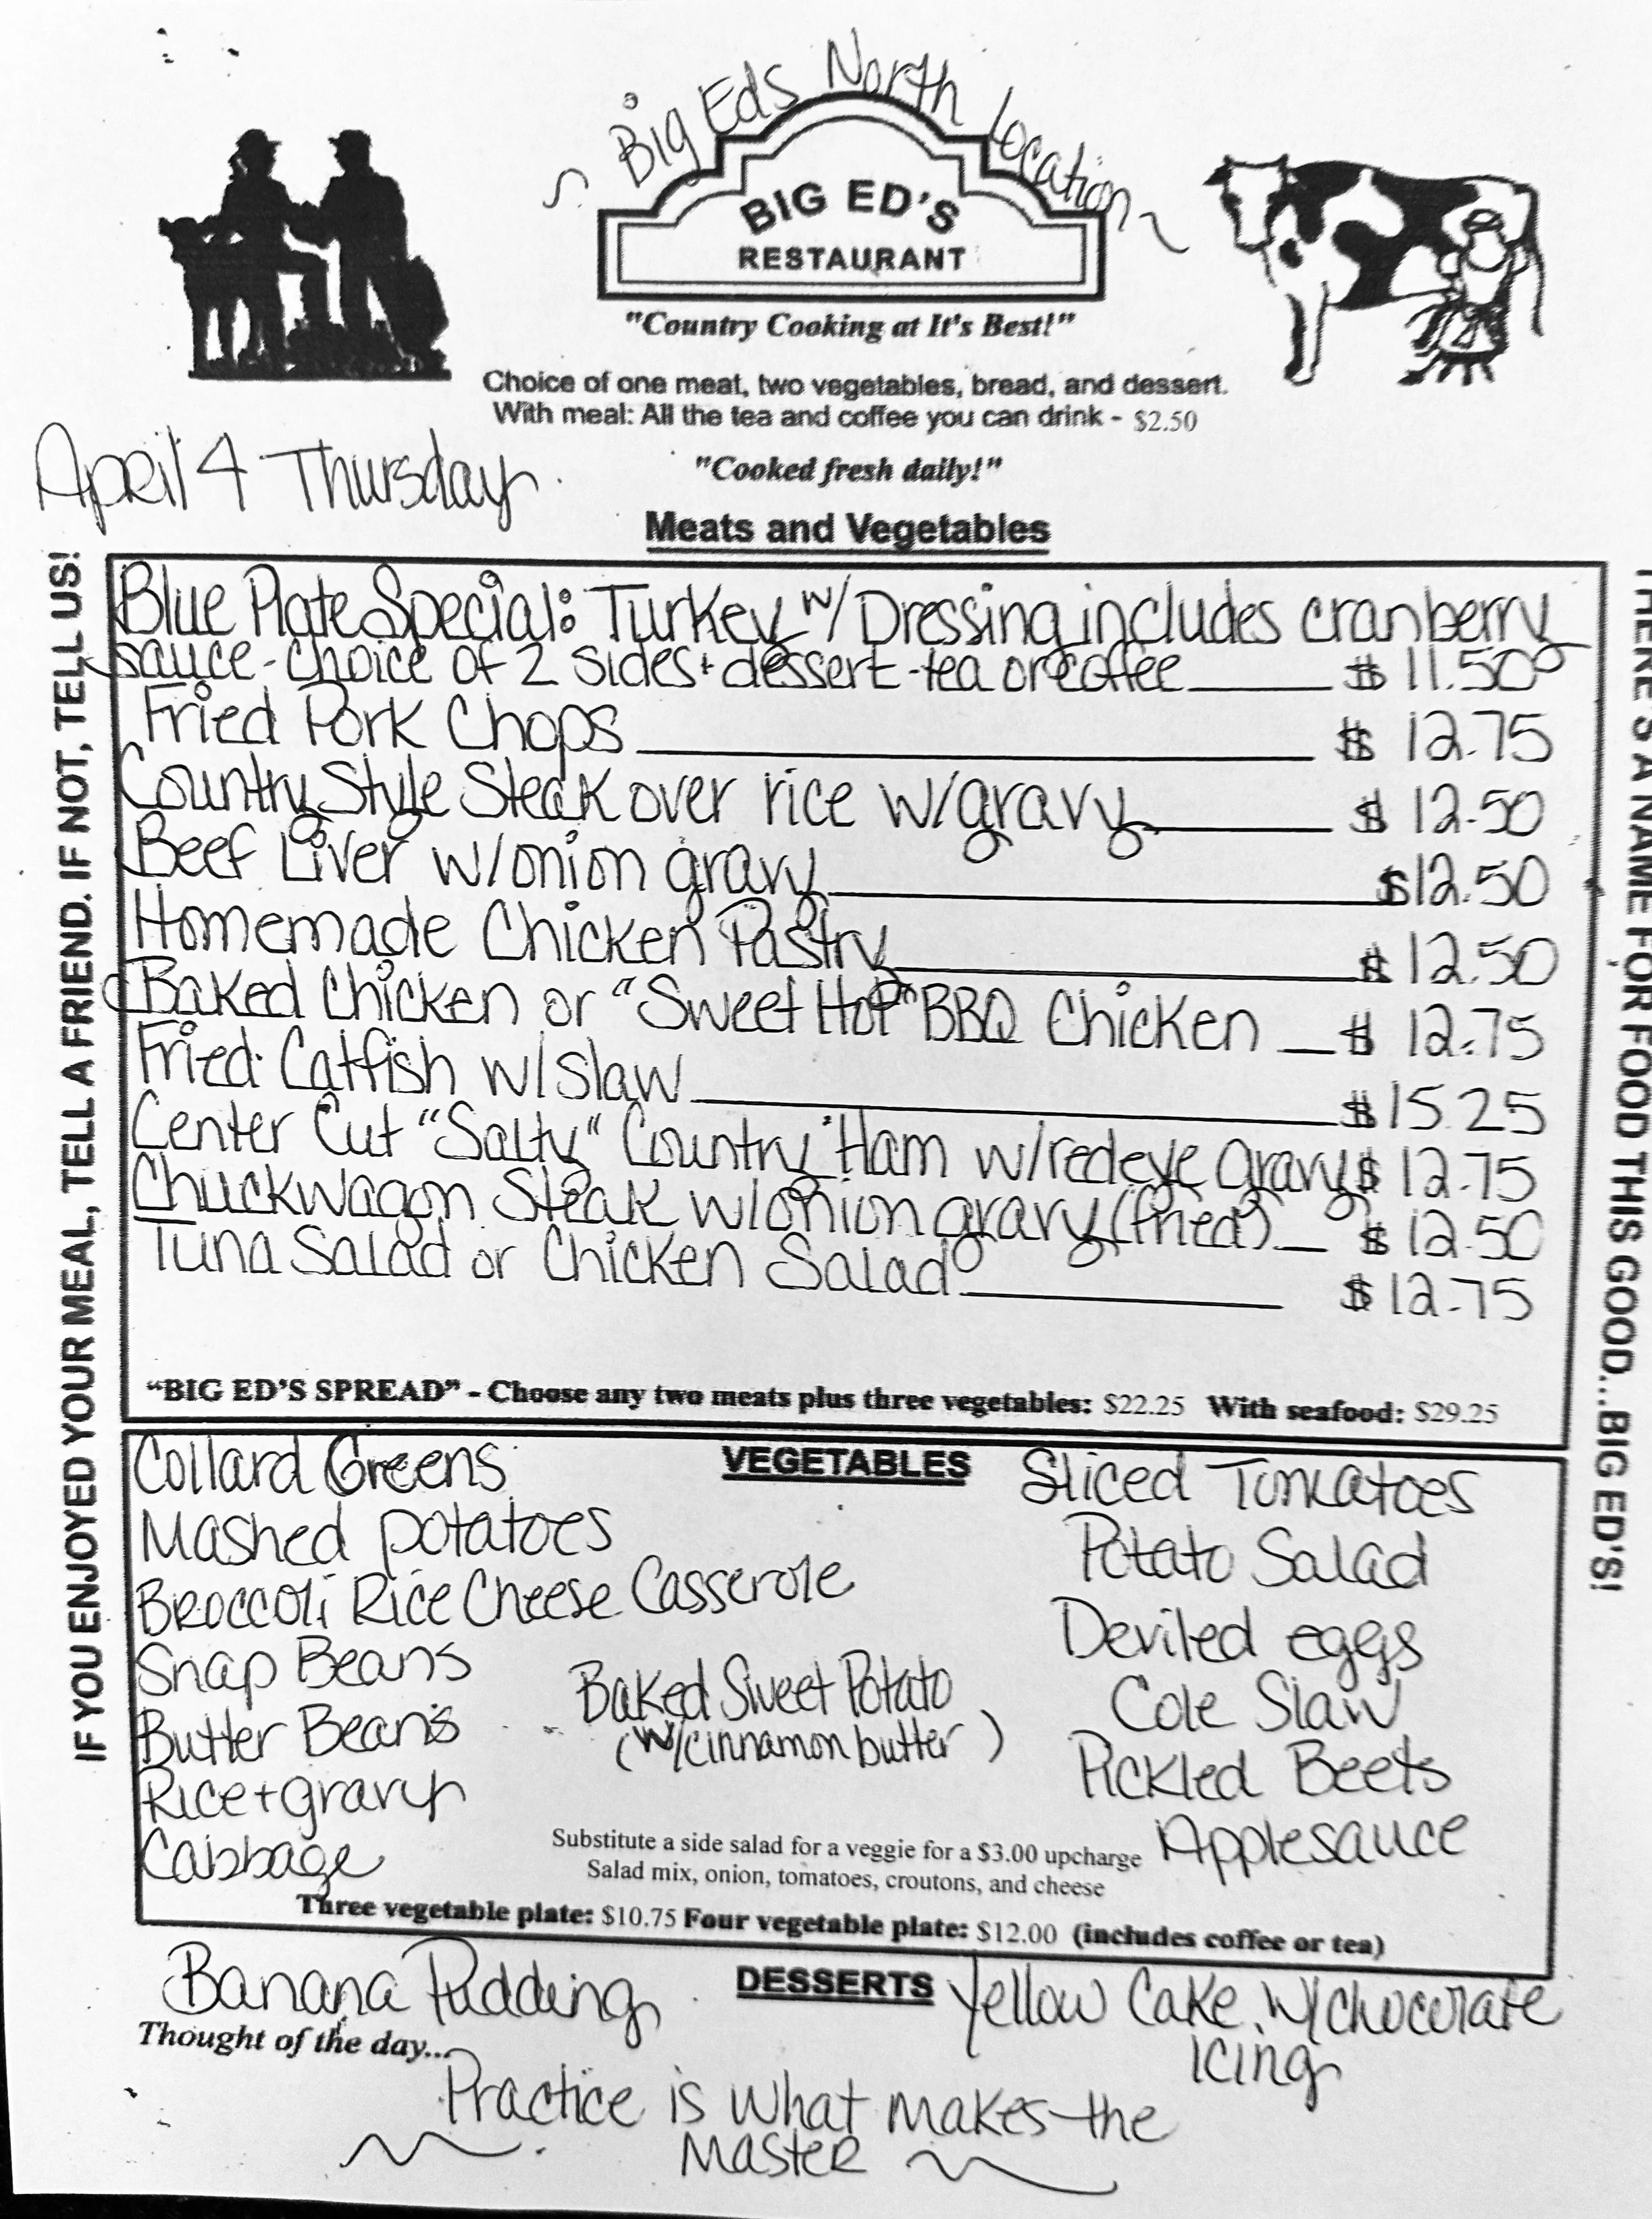 ~ Big Eds North Location ~
BIG ED'S
RESTAURANT
"Country Cooking at It's Best!"
Choice of one meat, two vegetables, bread, and dessert.
With meal: All the tea and coffee you can drink - $2.50
April 4 Thursday
"Cooked fresh daily!"
Meats and Vegetables
IF YOU ENJOYED YOUR MEAL, TELL A FRIEND. IF NOT, TELL US!
Blue Plate Special: Turkey w/ Dressing includes cranberry
sauce - choice of 2 sides + dessert - tea or coffee $ 11.50
Fried Pork Chops $ 12.75
Country Style Steak over rice w/gravy $ 12.50
Beef Liver w/onion gravy $12.50
Homemade Chicken Pastry $ 12.50
Baked Chicken or "Sweet Hot" BBQ Chicken $ 12.75
Fried Catfish w/slaw $15.25
Center Cut "Salty" Country Ham w/redeye gravy $ 12.75
Chuckwagon Steak w/onion gravy (fried) $ 12.50
Tuna Salad or Chicken Salad $ 12.75
"BIG ED'S SPREAD" - Choose any two meats plus three vegetables: $22.25 With seafood: $29.25
THERE'S A NAME FOR FOOD THIS GOOD...BIG ED'S!
VEGETABLES
Collard Greens
Mashed potatoes
Broccoli Rice Cheese Casserole
Snap Beans
Butter Beans
Rice + gravy
Cabbage
Baked Sweet Potato
(w/cinnamon butter)
Sliced Tomatoes
Potato Salad
Deviled eggs
Cole Slaw
Pickled Beets
Applesauce
Substitute a side salad for a veggie for a $3.00 upcharge
Salad mix, onion, tomatoes, croutons, and cheese
Three vegetable plate: $10.75 Four vegetable plate: $12.00 (includes coffee or tea)
DESSERTS
Banana Pudding
Yellow Cake w/chocolate
Icing
Thought of the day...
Practice is what makes the
Master